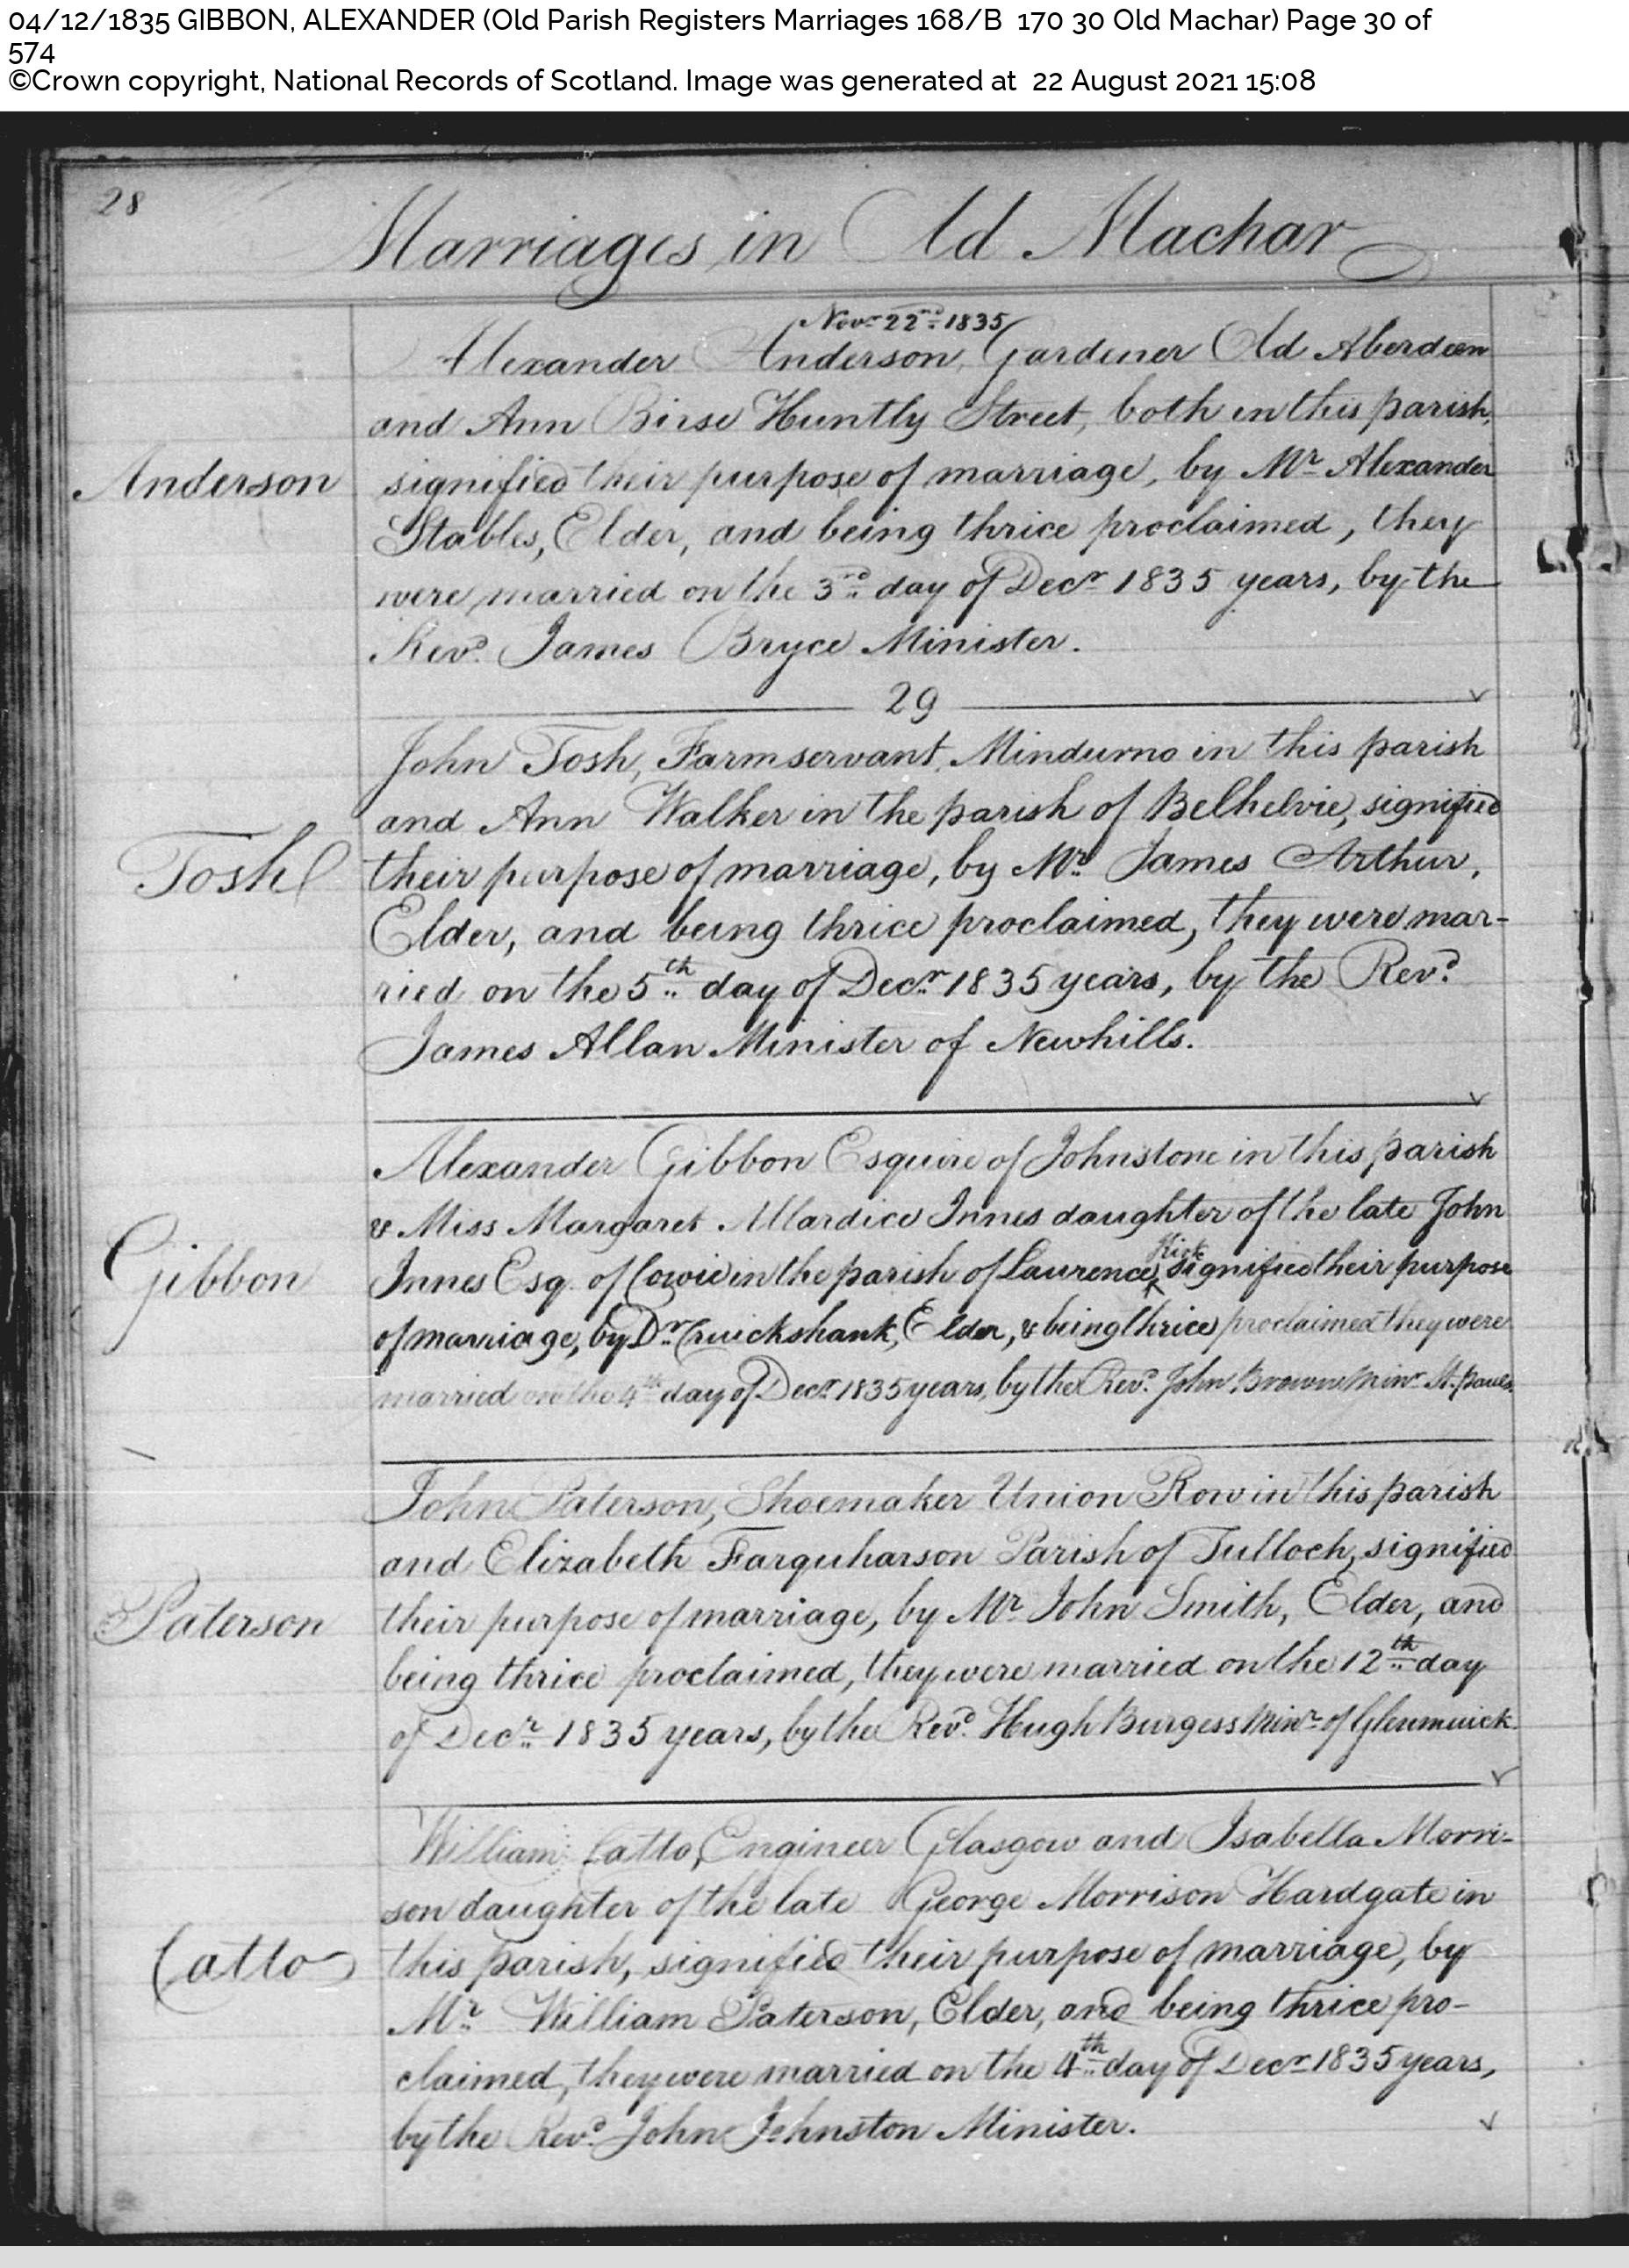 04/12/1835 GIBBON, ALEXANDER (Old Parish Registers Marriages 168/B 170 30 Old Machar) Page 30 of
574
©Crown copyright, National Records of Scotland. Image was generated at 22 August 2021 15:08
28
Marriages in Old Machar
Novr 22nd 1835
Alexander Anderson, Gardener Old Aberdeen
and Ann Birse Huntly Street, both in this parish,
Anderson
signified their purpose of marriage, by Mr Alexander
Stables, Elder, and being thrice proclaimed, they
were married on the 3rd day of Decr 1835 years, by the
Revd. James Bryce Minister.
29
John Tosh, Farmservant, Mindurno in this parish
and Ann Walker in the parish of Belhelvie, signified
Tosh
their purpose of marriage, by Mr. James Arthur,
Elder, and being thrice proclaimed, they were mar-
ried on the 5th day of Decr. 1835 years, by the Revd.
James Allan Minister of Newhills.
Alexander Gibbon Esquire of Johnstone in this parish
& Miss Margaret Allardice Innes daughter of the late John
Kirk
Gibbon
Innes Esq. of Cowie in the parish of Laurence, signified their purpose
of marriage, by Dr. Cruickshank, Elder, & being thrice proclaimed they were
married on the 4th day of Decr. 1835 years, by the Revd. John Brown Minr St. Pauls.
John Paterson, Shoemaker Union Row in this parish
and Elizabeth Farquharson Parish of Tulloch, signified
Paterson
their purpose of marriage, by Mr John Smith, Elder, and
being thrice proclaimed, they were married on the 12th day
of Decr. 1835 years, by the Revd. Hugh Burgess Minr of Glenmuick.
William Catto, Engineer Glasgow and Isabella Morri-
son daughter of the late George Morrison Hardgate in
Catto
this parish, signified their purpose of marriage, by
Mr. William Paterson, Elder, and being thrice pro-
claimed, they were married on the 4th day of Decr 1835 years,
by the Revd. John Johnston Minister.